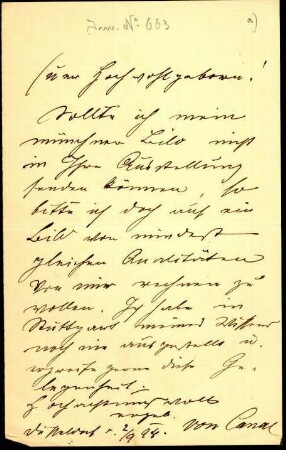 Inv. No 663
a)
Euer Hochwohlgeboren!
Sollte ich mein
münchner Bild nicht
in Ihre Ausstellung
senden können, so
bitte ich doch auf ein
Bild von mindest
gleichen Qualitäten
von mir rechnen zu
wollen. Ich habe in
Stuttgart meines Wissens
noch nie ausgestellt u.
ergreife gerne diese Ge-
legenheit.
Hochachtungsvoll
ergeb.
Düsseldorf 2/9 94. von Canal